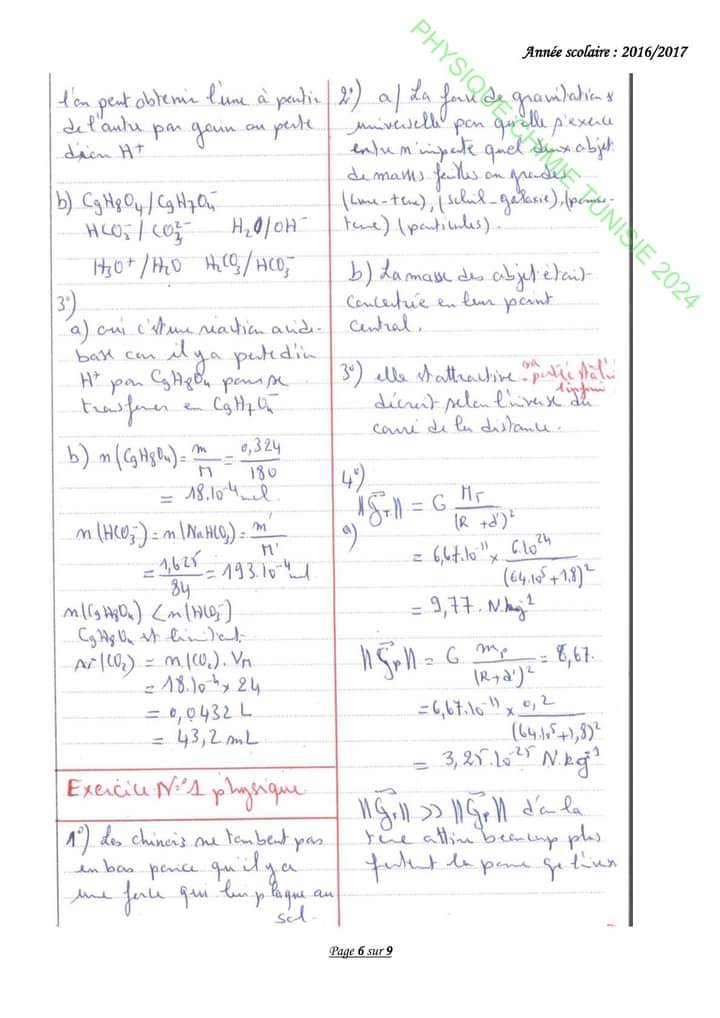 Année scolaire : 2016/2017
PHYSIQUE CHIMIE TUNISIE 2024
l'on peut obtenir l'une à partir
de l'autre par gain ou perte
d'ion H⁺
b) C₉H₈O₄/C₉H₇O₄⁻
HCO₃⁻/CO₃²⁻ H₂O/OH⁻
H₃O⁺/H₂O H₂CO₃/HCO₃⁻
3°)
a) oui c'est une réaction acide-
base car il y a perte d'un
H⁺ par C₉H₈O₄ pour se
transformer en C₉H₇O₄⁻
b) n(C₉H₈O₄) = m/M = 0,324/180
= 18.10⁻⁴ mol
n(HCO₃⁻) = n(NaHCO₃) = m'/M'
= 1,625/84 = 193.10⁻⁴ mol
n(C₉H₈O₄) < n(HCO₃⁻)
C₉H₈O₄ est limitant.
(CO₂) = n(CO₂) . V_M
= 18.10⁻⁴ x 24
= 0,0432 L
= 43,2 mL
Exercice N°1 physique
1°) Les chinois ne tombent pas
en bas parce qu'il y a
une force qui les plaque au
sol.
2°) a/ La force de gravitation
universelle par qu'elle s'exerce
entre n'importe quel deux objet
de masses faibles ou grandes
(Lune-terre), (soleil-galaxie), (pomme-
terre) (particules).
b) La masse des objet était
concentrée en leur point
central.
3°) elle est attractive. sa portée
décroit selon l'inverse du
carré de la distance.
4°)
a) ||g_T|| = G M_T/(R + d')²
= 6,67.10⁻¹¹ x 6.10²⁴/(64.10⁵+1,8)²
= 9,77. N.kg⁻¹
||g_p|| = G m_p/(R+d')² = 6,67.
= 6,67.10⁻¹¹ x 0,2/(64.10⁵+1,8)²
= 3,25.10⁻²⁵ N.kg⁻¹
||G_T|| >> ||G_p|| d'où la
terre attire beaucoup plus